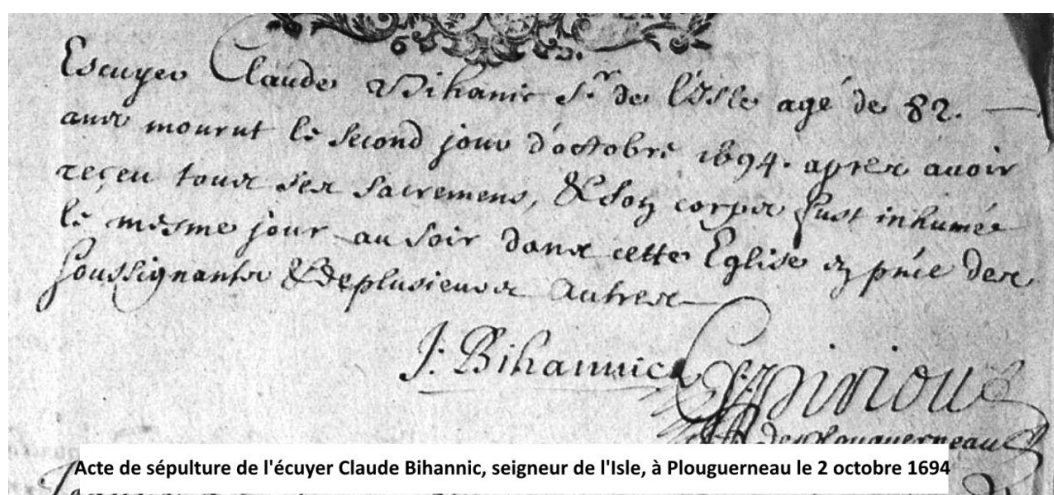 Escuyer Claude Bihanic Sr. de l'Isle agé de 82.
ans mourut le second jour d'octobre 1694. apres auoir
reçeu tous ses sacremens, & son corps fust inhumée
le mesme jour au soir dans cette Eglise en pnce des
soussignants & de plusieurs autres
J: Bihannic
de Plouguerneau
Acte de sépulture de l'écuyer Claude Bihannic, seigneur de l'Isle, à Plouguerneau le 2 octobre 1694